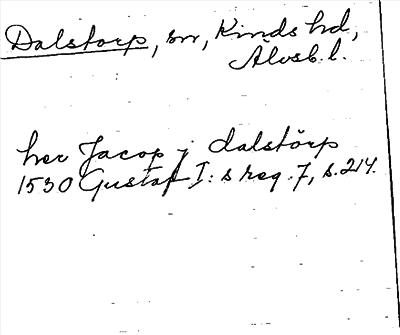 Dalstorp, sn, Kinds hd,
Älvsb. l.
her Jacop j dalstörp
1530 Gustaf I:s reg. 7, s. 214.